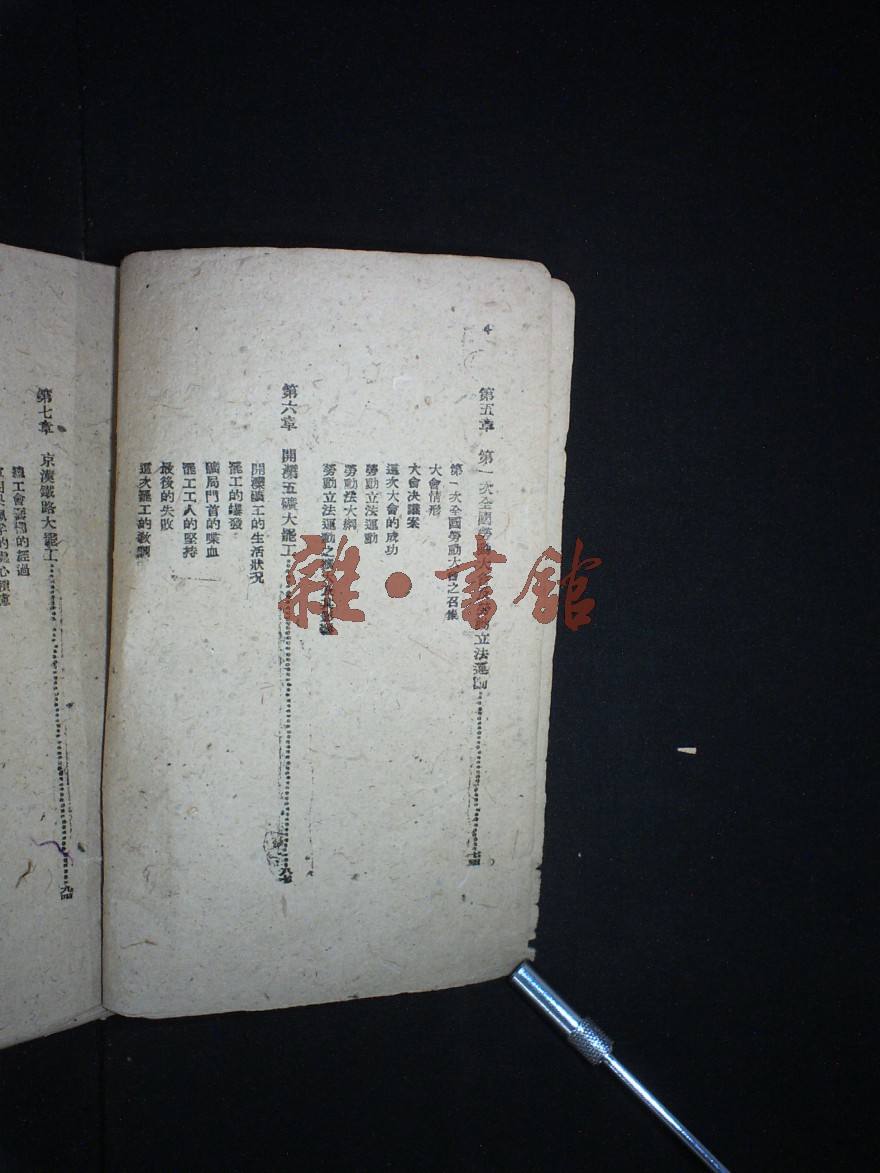 4
第五章 第一次全國勞動大會 勞動立法運動 七四
第一次全國勞動大會之召集
大會情形
大會決議案
這次大會的成功
勞動立法運動
勞動法大綱
勞動立法運動之
第六章 開灤五礦大罷工 八七
開灤礦工的生活狀況
罷工的爆發
礦局門首的喋血
罷工工人的堅持
最後的失敗
這次罷工的教訓
第七章 京漢鐵路大罷工 九四
總工會籌備的經過
雜·書館